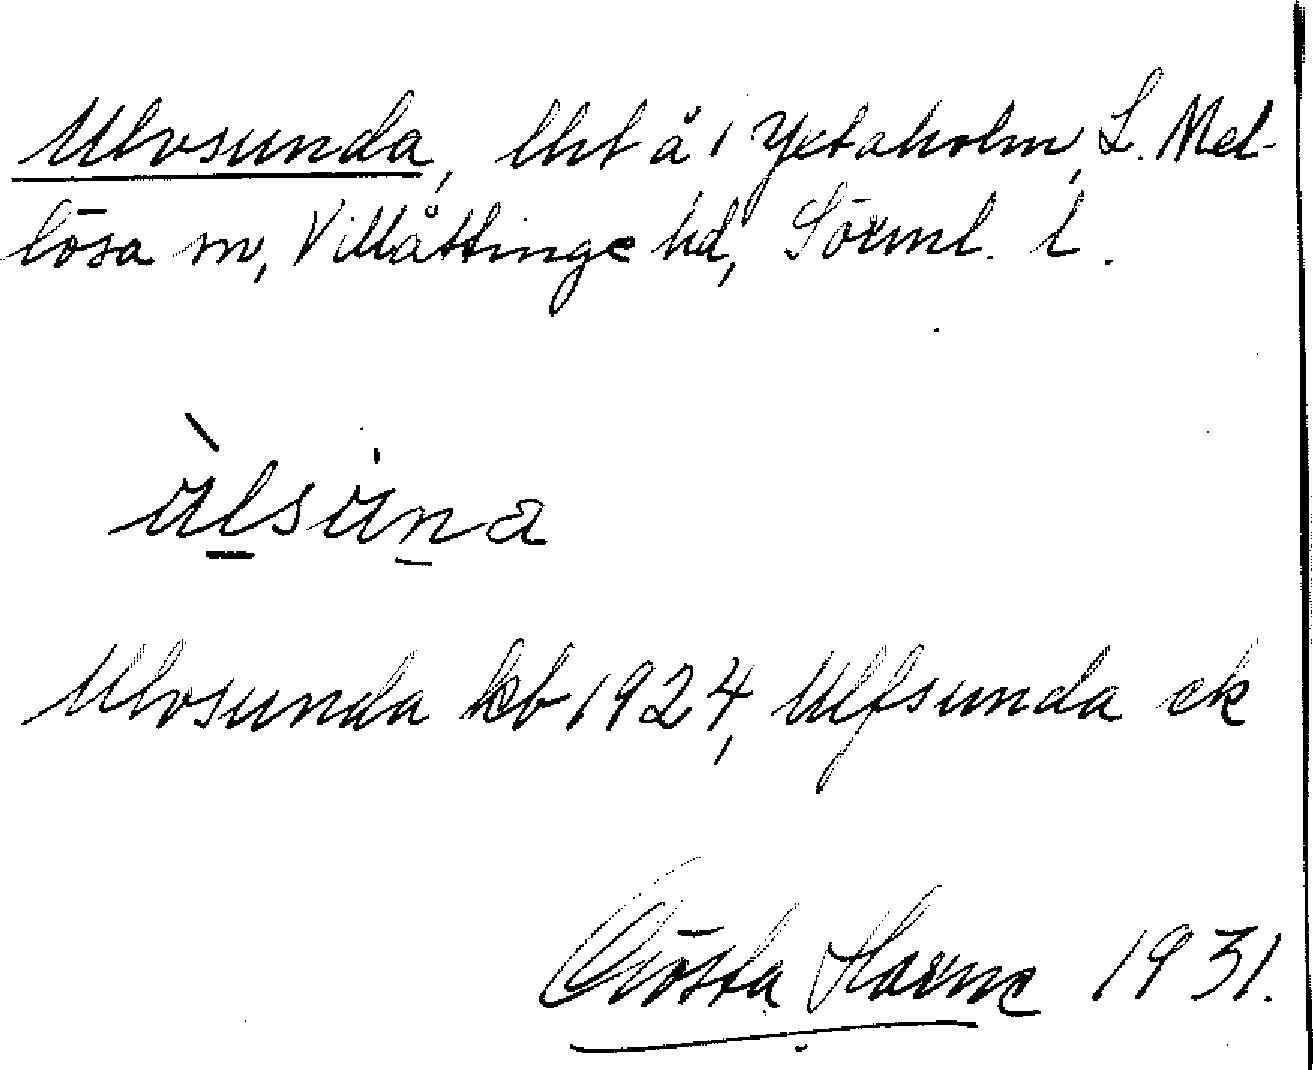 Ulvsunda, lht å i Yxtaholm, L. Mel-
lösa sn, Villåttinge hd, Sörml. l.
ùlsúna
Ulvsunda kb 1924, Ulfsunda ek
Gösta Horne 1931.